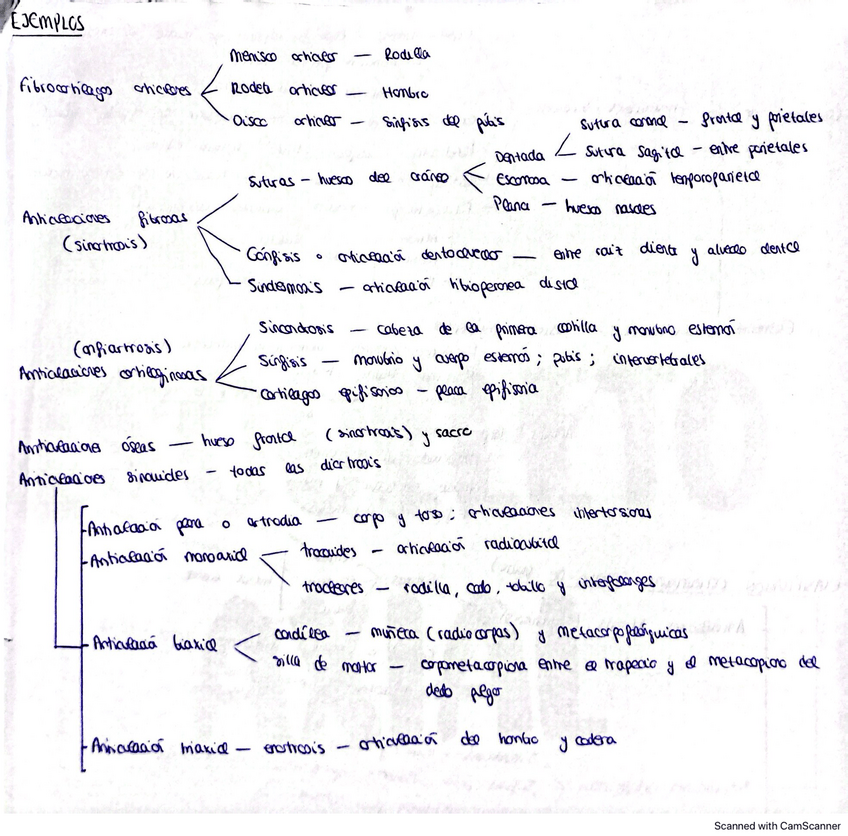 EJEMPLOS
Menisco articular — Rodilla
Fibrocartílagos articulares
Rodete articular — Hombro
Disco articular — Sínfisis del pubis
Sutura coronal — frontal y parietales
Dentada
Sutura sagital — entre parietales
Suturas — huesos del cráneo
Escamosa — articulación temporoparietal
Plana — huesos nasales
Articulaciones fibrosas
(sinartrosis)
Gónfisis o articulación dentoalveolar — entre raíz diente y alveolo dental
Sindesmosis — articulación tibioperonea distal
Sincondrosis — cabeza de la primera costilla y manubrio esternal
(anfiartrosis)
Sínfisis — manubrio y cuerpo esternón; pubis; intervertebrales
Articulaciones cartilaginosas
Cartílagos epifisarios — placa epifisaria
Articulaciones óseas — hueso frontal (sinartrosis) y sacro
Articulaciones sinoviales — todas las diartrosis
Articulación plana o artrodia — carpo y tarso; articulaciones intertarsianas
Articulación monoaxial
trocoides — articulación radiocubital
trocleares — rodilla, codo, tobillo y interfalanges
Articulación biaxial
condílea — muñeca (radiocarpos) y metacarpofalángicas
silla de montar — carpometacarpiana entre el trapecio y el metacarpiano del
dedo pulgar
Articulación triaxial — enartrosis — articulación del hombro y cadera
Scanned with CamScanner